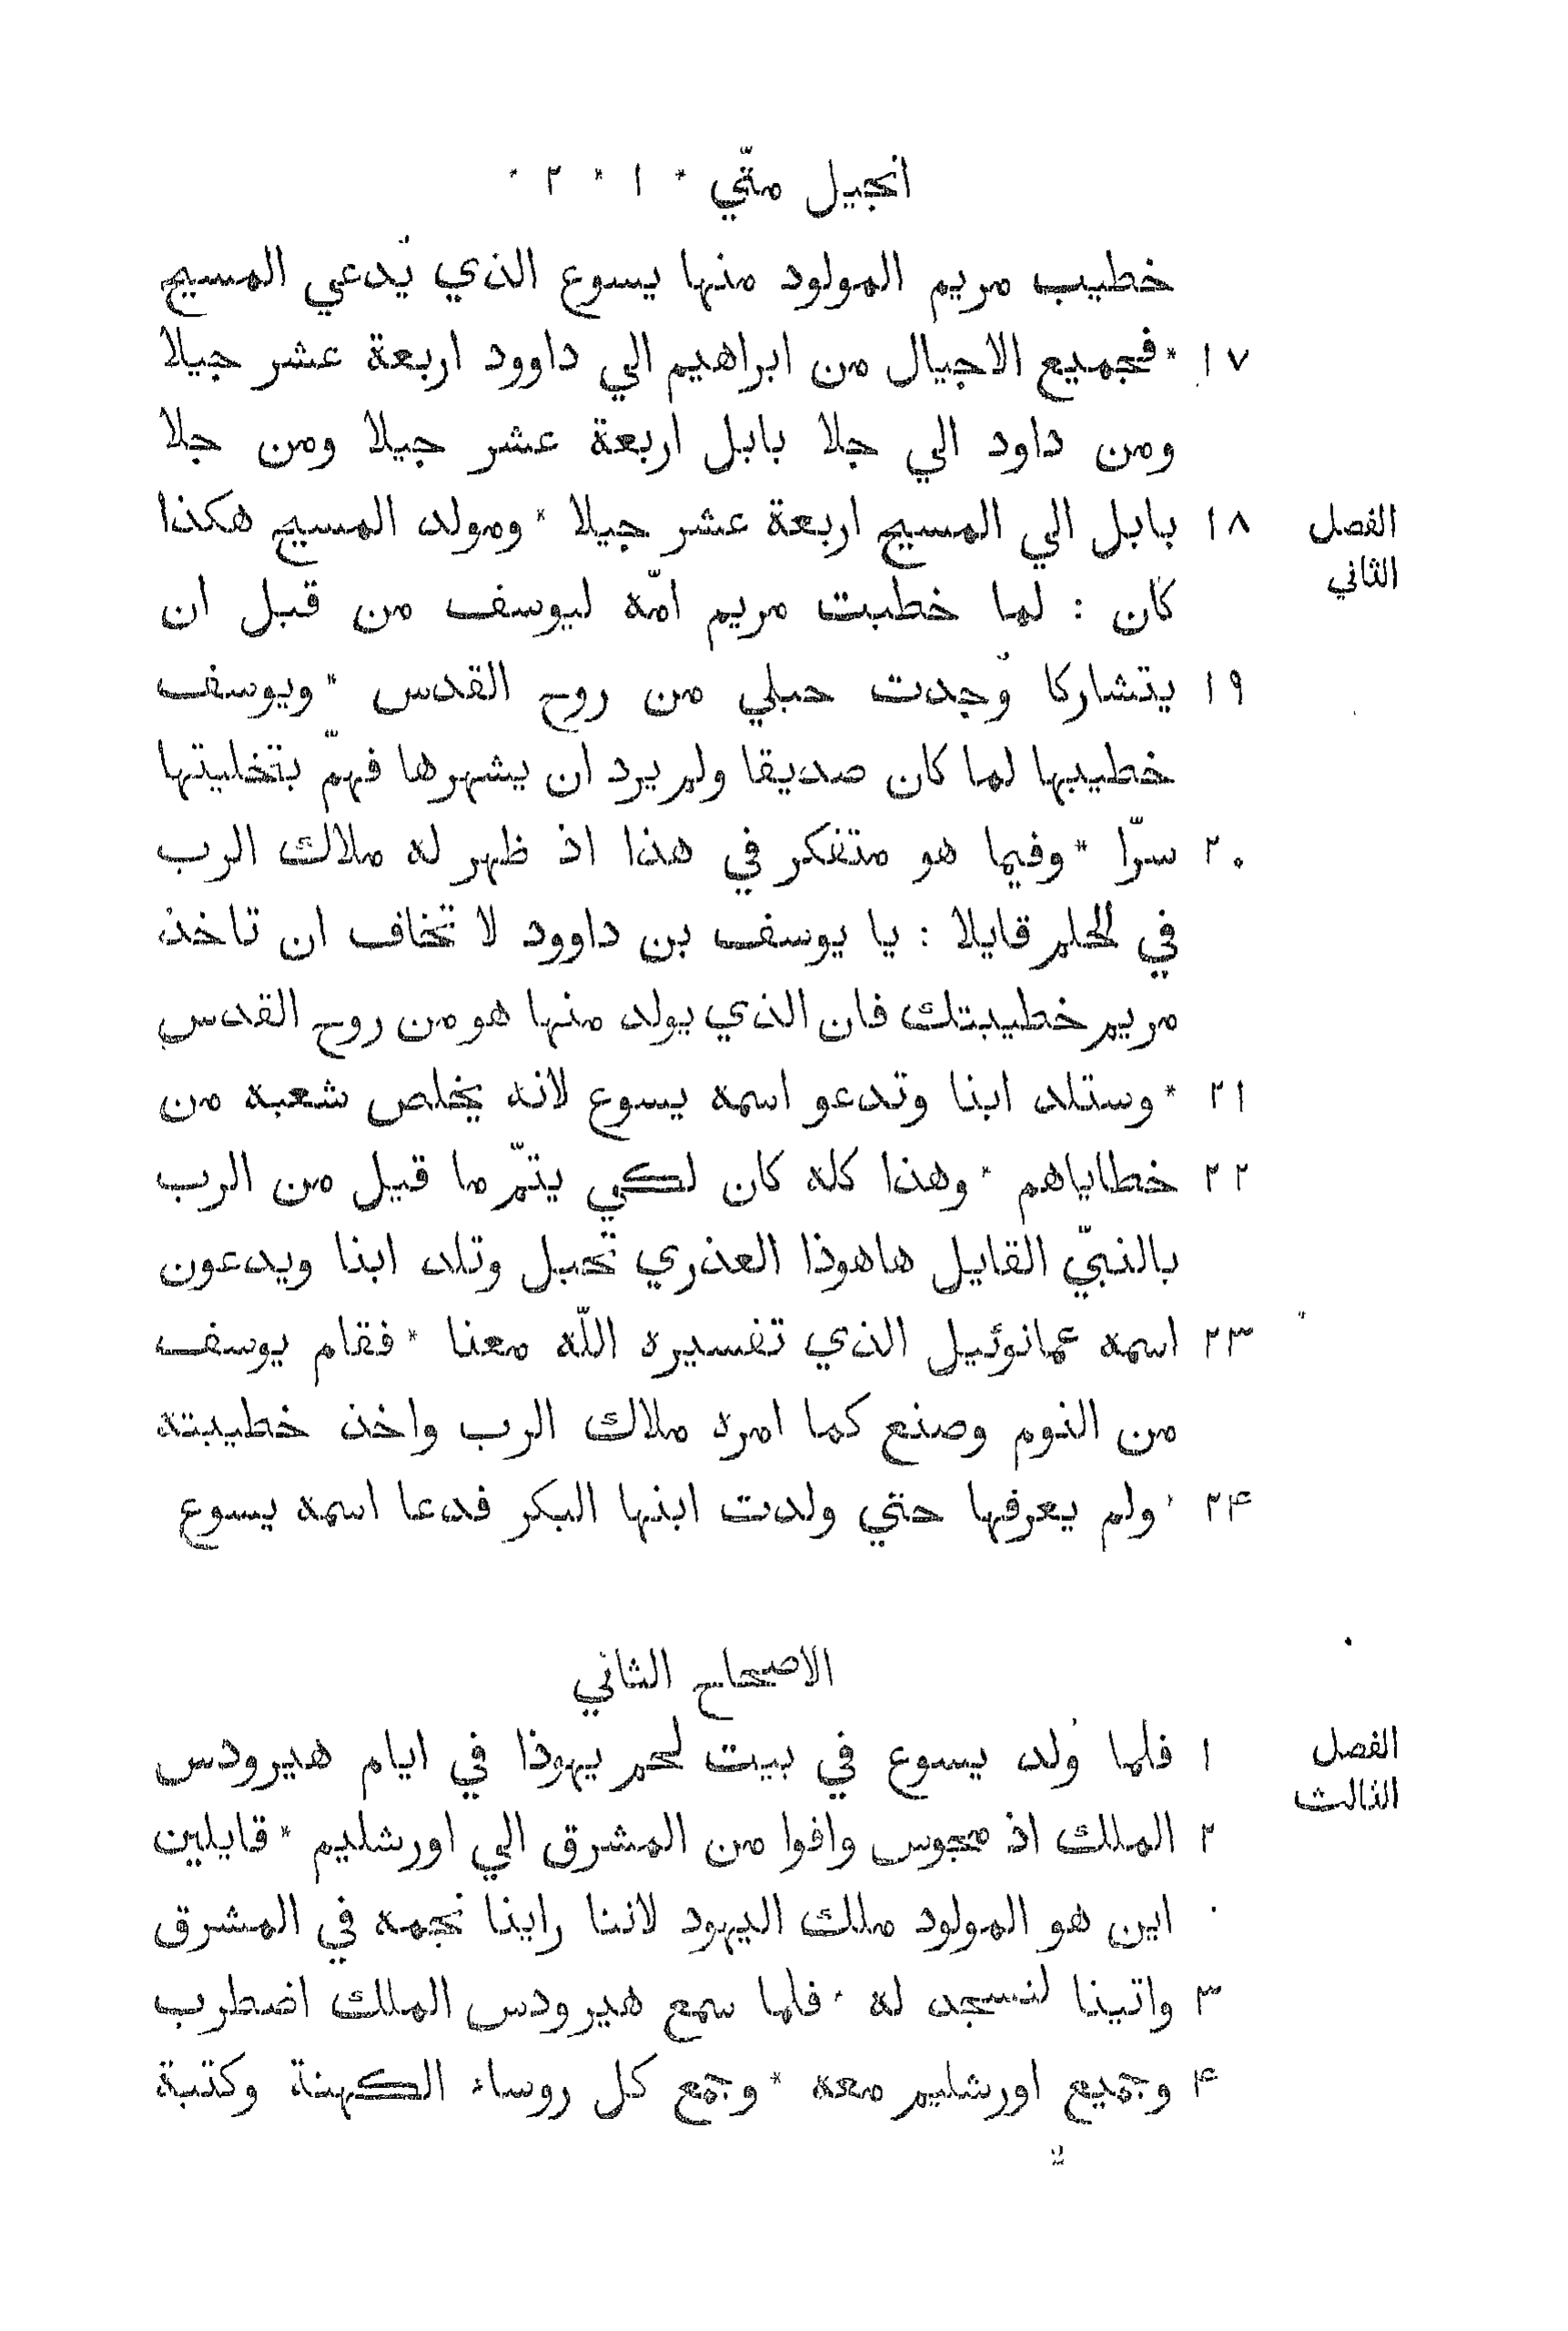 انجيل متّي * ١ * ٢ *
خطيب مريم المولود منها يسوع الذي يُدعي المسيح
١٧ * فجميع الاجيال من ابراهيم الي داوود اربعة عشر جيلا
ومن داود الي جلا بابل اربعة عشر جيلا ومن جلا
الفصل الثاني
١٨ بابل الي المسيح اربعة عشر جيلا * ومولد المسيح هكذا
كان : لما خطبت مريم امّه ليوسف من قبل ان
١٩ يتشاركا وُجدت حبلي من روح القدس * ويوسف
خطيبها لما كان صديقا ولم يرد ان يشهرها فهمّ بتخليتها
٢٠ سرّا * وفيما هو متفكر في هذا اذ ظهر له ملاك الرب
في الحلم قايلا : يا يوسف بن داوود لا تخاف ان تاخذ
مريم خطيبتك فان الذي يولد منها هو من روح القدس
٢١ * وستلد ابنا وتدعو اسمه يسوع لانه يخلص شعبه من
٢٢ خطاياهم * وهذا كله كان لكي يتمّ ما قيل من الرب
بالنبيّ القايل هاهوذا العذري تحبل وتلد ابنا ويدعون
٢٣ اسمه عمانوئيل الذي تفسيره اللّه معنا * فقام يوسف
من النوم وصنع كما امره ملاك الرب واخذ خطيبته
٢۴ * ولم يعرفها حتي ولدت ابنها البكر فدعا اسمه يسوع
الاصحاح الثاني
الفصل الثالث
١ فلما وُلد يسوع في بيت لحم يهوذا في ايام هيرودس
٢ الملك اذ مجوس وافوا من المشرق الي اورشليم * قايلين
اين هو المولود ملك اليهود لاننا راينا نجمه في المشرق
٣ واتينا لنسجد له * فلما سمع هيرودس الملك اضطرب
۴ وجميع اورشليم معه * وجمع كل روساء الكهنة وكتبة